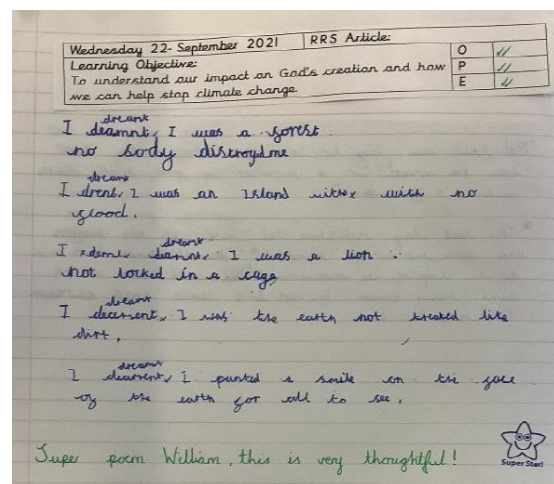 Wednesday 22- September 2021 RRS Article:
Learning Objective:
To understand our impact on God's creation and how
we can help stop climate change.
O
P
E
dreamt
I deamnt, I was a forest
no body distroyd me
dreamt
I drent, I was an Island with no
flood.
dreamt
I I was a lion
not locked in a cage
dreamt
I I was the earth not treated like
dirt.
dreamt
I I panted a smile on the face
of the earth for all to see.
Super poem William, this is very thoughtful!
Super Star!